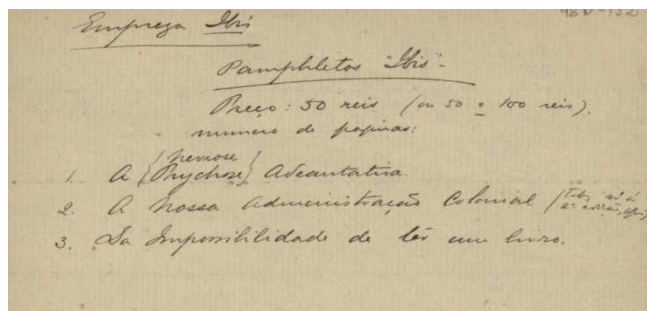 48B-132
Empreza Ibis
Pamphletos "Ibis".
Preço: 50 reis (ou 50 e 100 reis).
numero de paginas:
nevrose
1. A {Psychose} Adeantativa.
2. A Nossa Administração Colonial (
3. Da Impossibilidade de lêr um livro.